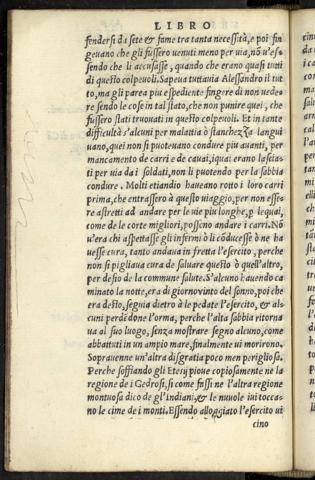 LIBRO
fendersi da sete & fame tra tanta necessità, e poi fin
geuano che gli fussero uenuti meno per uia, nō u'es-
sendo che li accusasse, quando che erano quasi tutti
di questo colpeuoli. Sapeua tuttauia Alessandro il tut
to, ma gli parea piu espediente fingere di non uede-
re sendo le cose in tal stato, che non punire quei, che
fussero stati truouati in questo colpeuoli. Et in tante
difficultà s'alcuni per malattia ò stanchezza langui
uano, quei non si puoteuano condure piu auanti, per
mancamento di carri e de cauai, iquai erano lascia-
ti per uia da i soldati, non li puotendo per la sabbia
condure. Molti etiandio haueano rotto i loro carri
prima, che entrassero à questo uiaggio, per non esse-
re astretti ad andare per le uie piu longhe, p lequai,
come de le corte migliori, possono andare i carri. Nō
u'era chi aspettasse gli infermi ò li cōducesse ò ne ha
uesse cura, tanto andaua in fretta l'esercito, perche
non si pigliaua cura de saluare questo ò quell'altro,
per desio de la commune salute. S'alcuno hauendo ca
minato la notte, era di giorno uinto del sonno, poi che
era desto, seguia dietro à le pedate l'esercito, & al-
cuni perdēdone l'orma, perche l'alta sabbia ritorna
ua al suo luogo, senza mostrare segno alcuno, come
abbattuti in un ampio mare, finalmente ui morirono.
Soprauenne un'altra disgratia poco men perigliosa.
Perche soffiando gli Etesij pioue copiosamente ne la
regione de i Gedrosi, sì come fussi ne l'altra regione
montuosa dico de gl'Indiani, & le nuuole iui tocca-
no le cime de i monti. Essendo alloggiato l'esercito ui
cino